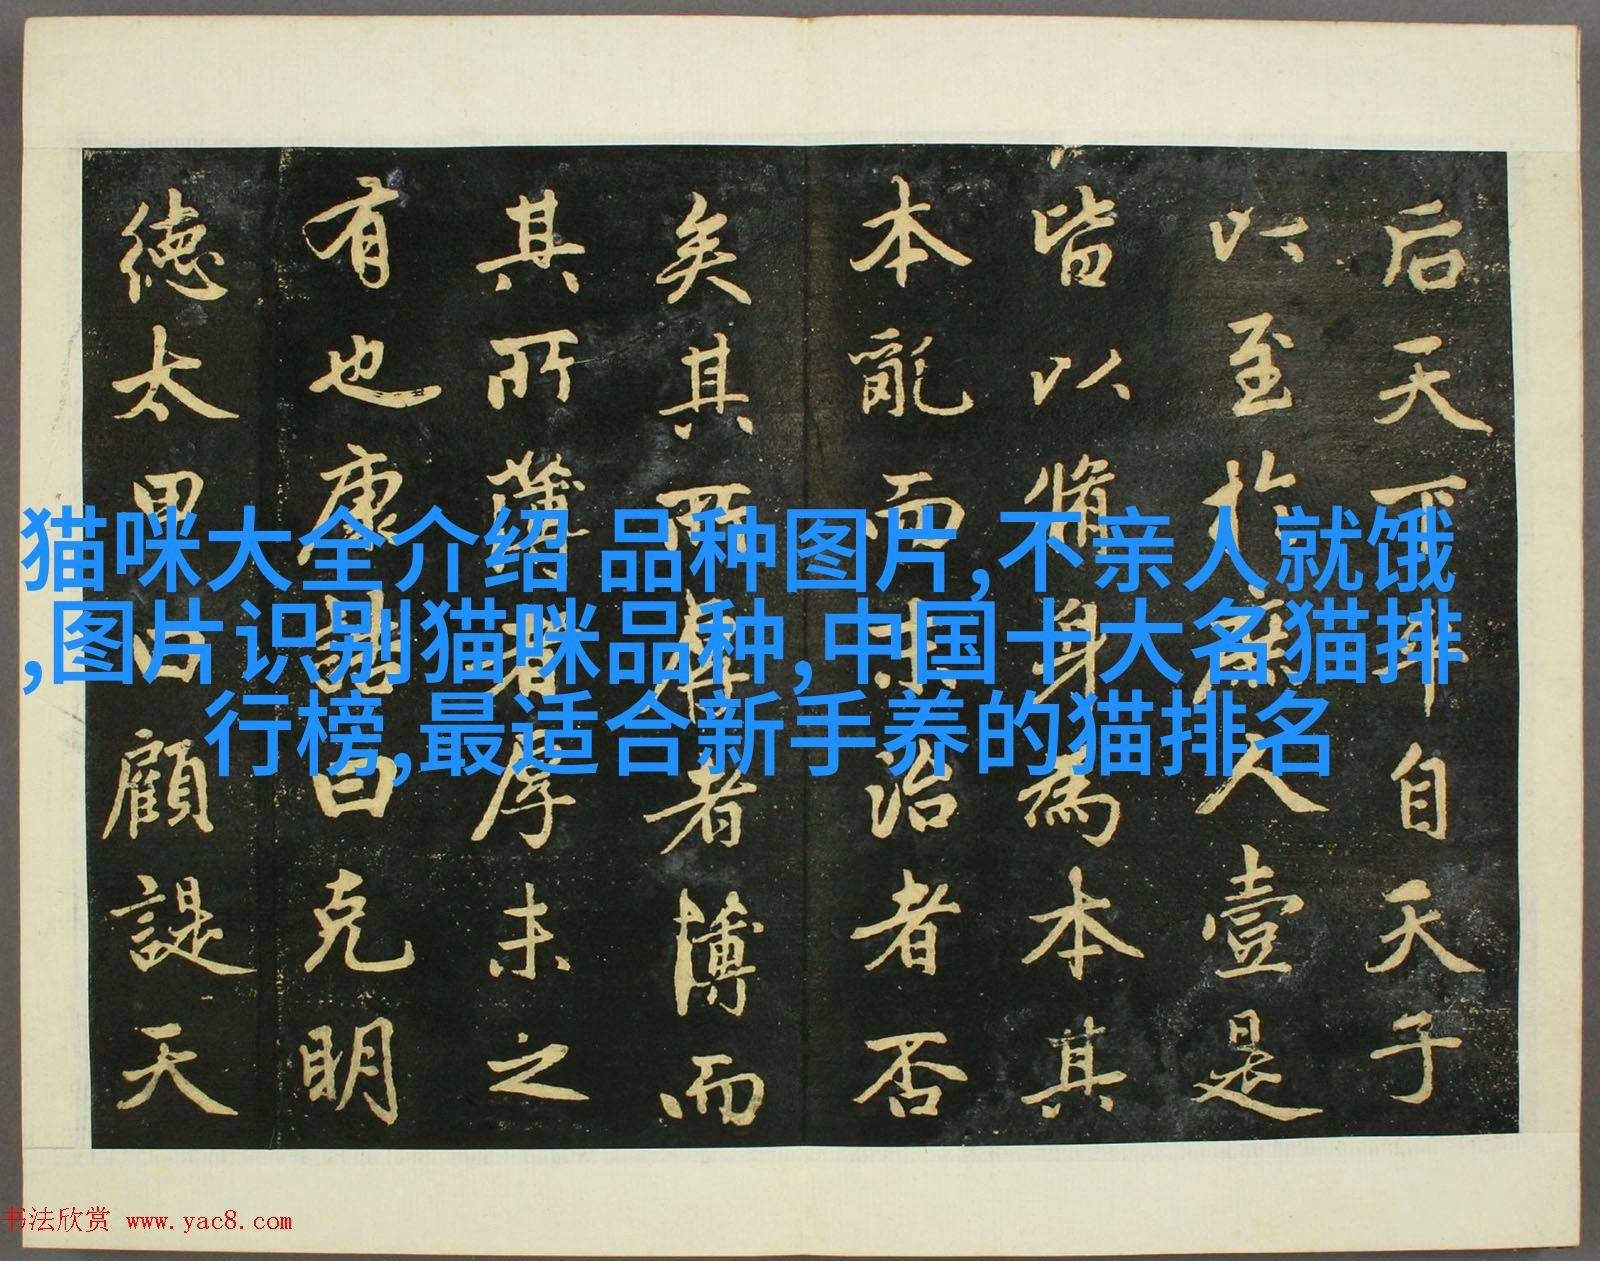 后天下平自天子
以至於庶人壹是
皆以脩身為本其
本亂而末治者否
矣其所厚者薄而
其所薄者厚未之
有也康誥曰克明
德太甲曰顧諟天
猫咪大全介绍 品种图片,不亲人就饿
,图片识别猫咪品种,中国十大名猫排
行榜,最适合新手养的猫排名
书法欣赏 www.yac8.com